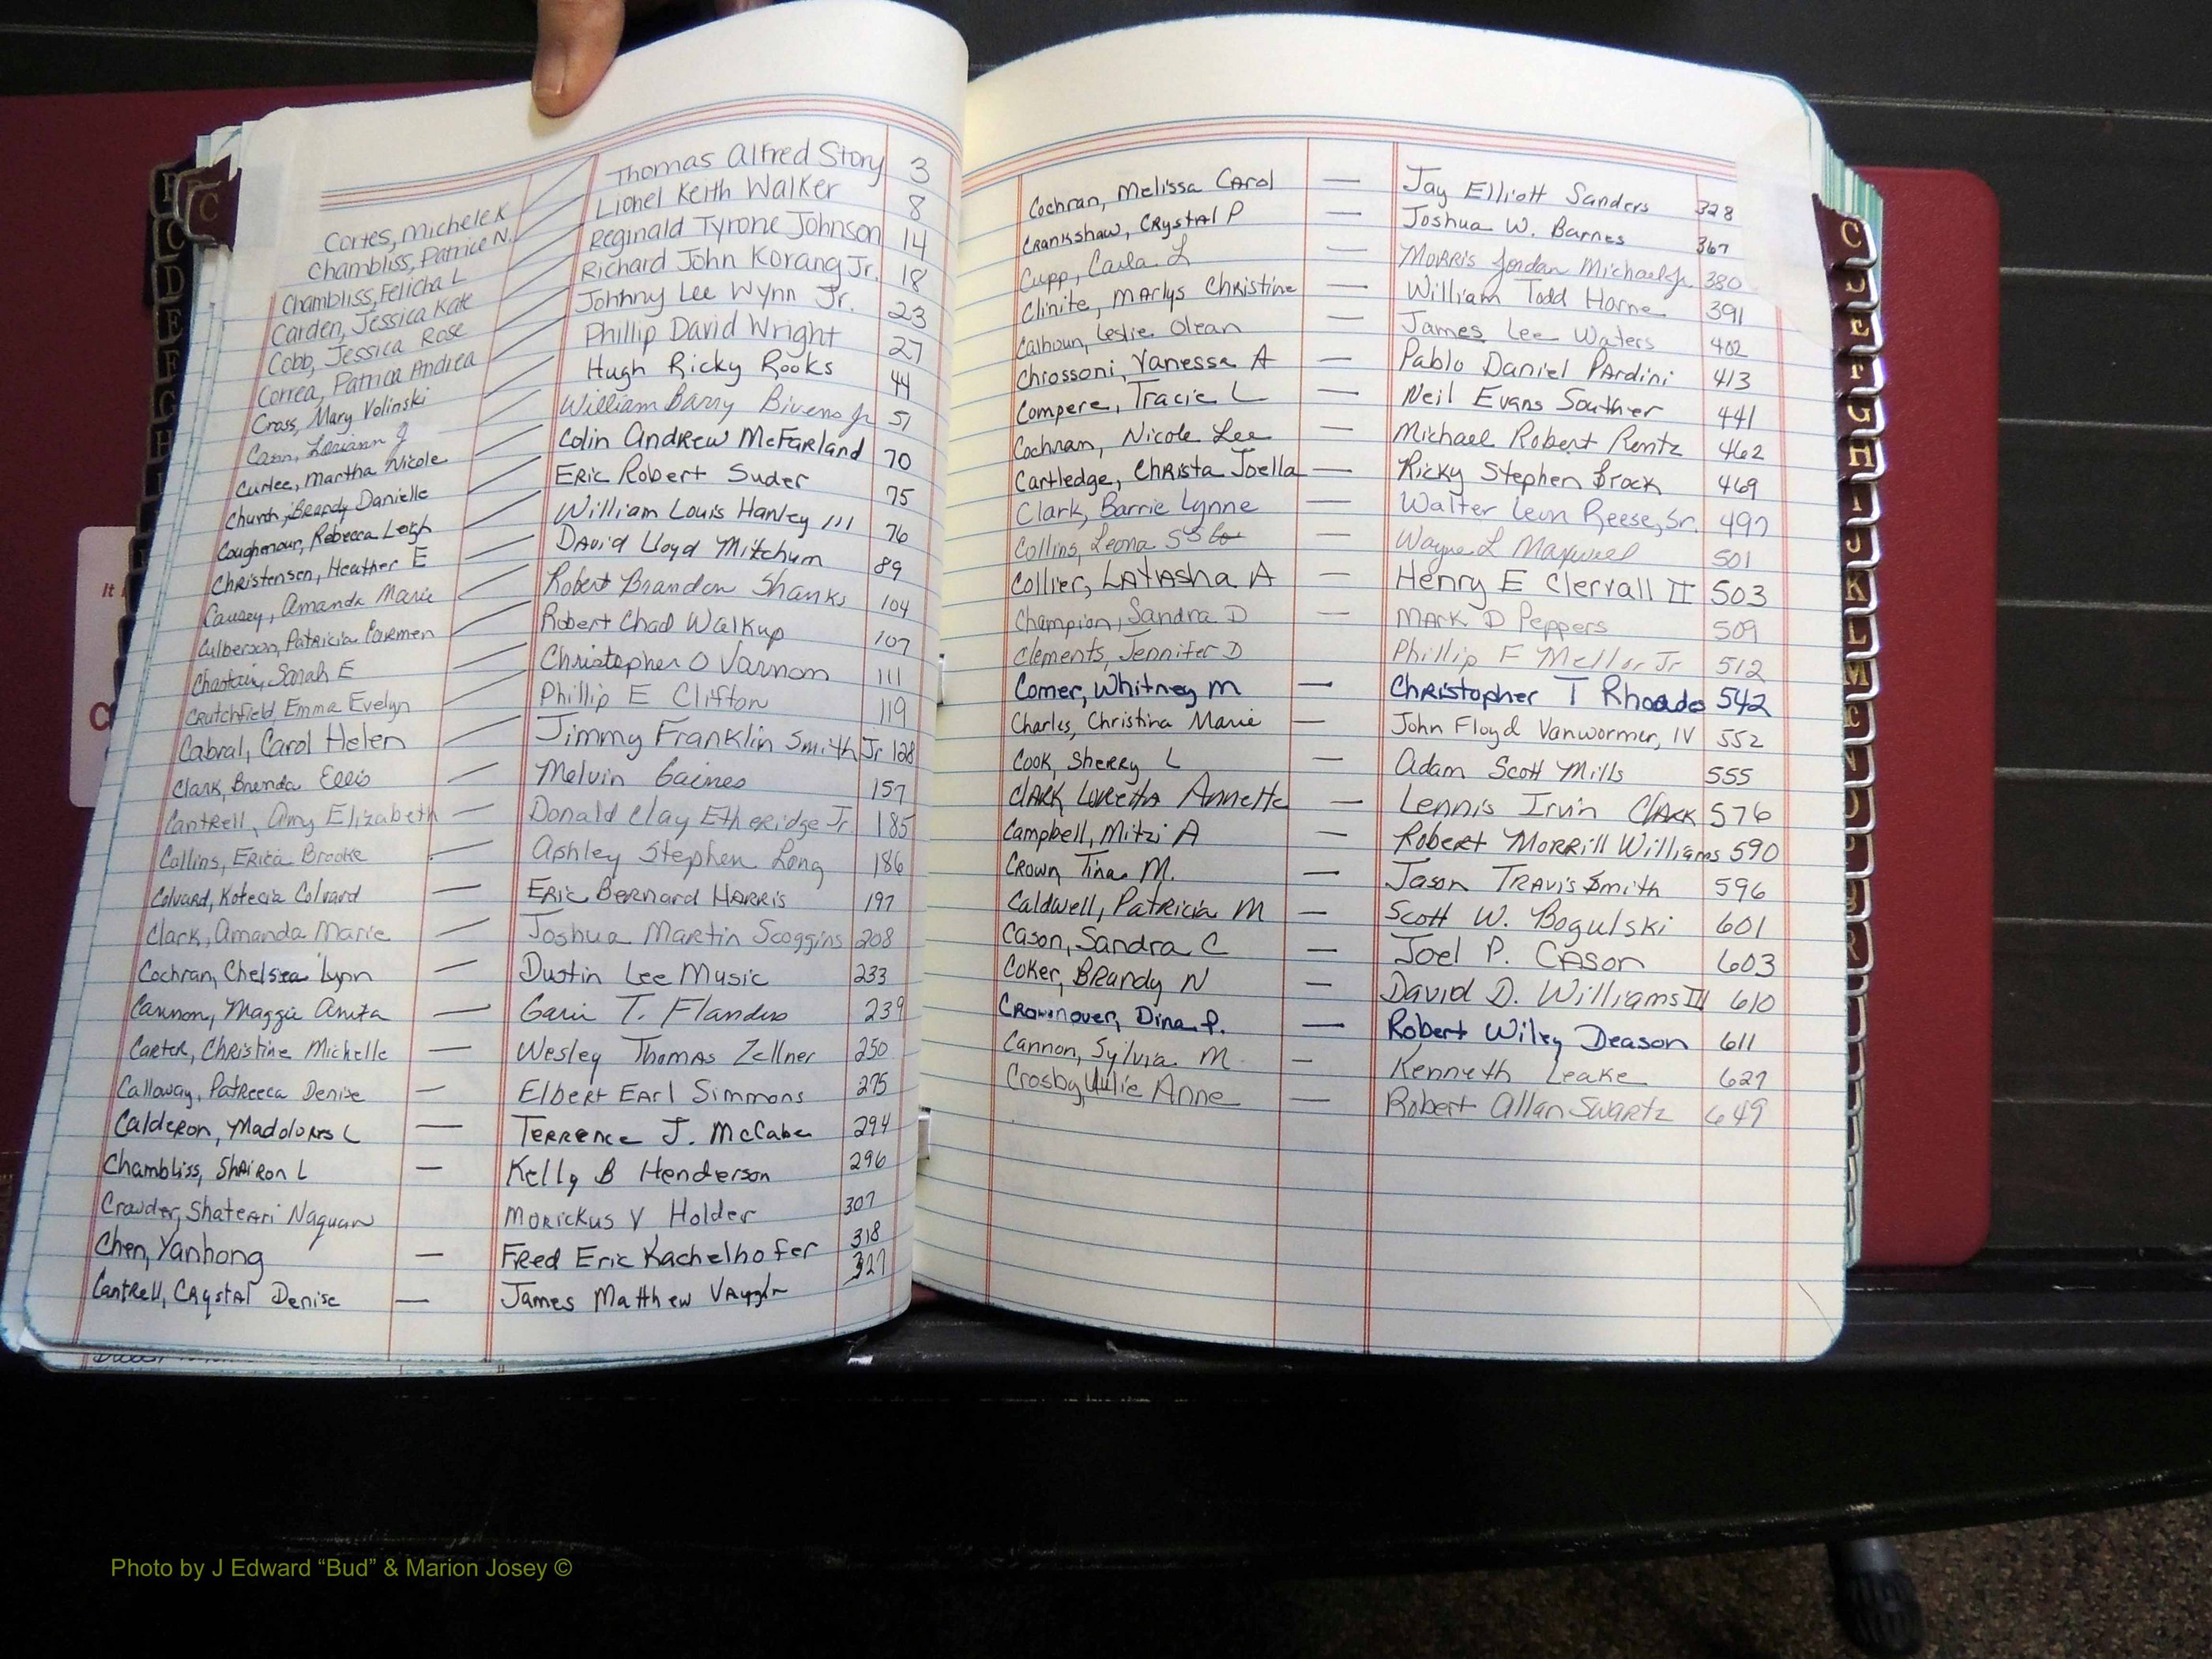 Cortes, Michele K Thomas Alfred Story 3
Chambliss, Patrice N. Lionel Keith Walker 8
Chambliss, Felicha L Reginald Tyrone Johnson 14
Carden, Jessica Kate Richard John Korang Jr. 18
Cobb, Jessica Rose Johnny Lee Wynn Jr. 23
Correa, Patricia Andrea Phillip David Wright 27
Cross, Mary Volinski Hugh Ricky Rooks 44
Cann, Loriann J William Barry Bivens Jr 51
Curlee, Martha Nicole Colin Andrew McFarland 70
Church, Brandy Danielle Eric Robert Suder 75
Coughenour, Rebecca Leigh William Louis Hanley III 76
Christensen, Heather E David Lloyd Mitchum 89
Causey, Amanda Marie Robert Brandon Shanks 104
Culberson, Patricia Coremen Robert Chad Walkup 107
Chastain, Sarah E Christopher O Varnom 111
Crutchfield, Emma Evelyn Phillip E Clifton 119
Cabral, Carol Helen Jimmy Franklin Smith Jr 128
Clark, Brenda Ellis Melvin Gaines 157
Cantrell, Amy Elizabeth Donald Clay Etheridge Jr. 185
Collins, Erica Brooke Ashley Stephen Long 186
Colvard, Kotecia Colvard Eric Bernard Harris 197
Clark, Amanda Marie Joshua Martin Scoggins 208
Cochran, Chelsea Lynn Dustin Lee Music 233
Cannon, Maggie Anita T. Flanders 239
Carter, Christine Michelle Wesley Thomas Zellner 250
Calloway, Patreeca Denise Elbert Earl Simmons 275
Calderon, Madolores L Terrence J. McCabe 294
Chambliss, Shairon L Kelly B Henderson 296
Crowder, Shateari Naquan Morickus V Holder 307
Chen, Yanhong Fred Eric Kachelhofer 318
Cantrell, Crystal Denise James Matthew Vaughn 327
Cochran, Melissa Carol — Jay Elliott Sanders 328
Crankshaw, Crystal P — Joshua W. Barnes 367
Cupp, Carla L — Morris Jordan Michael Jr. 380
Clinite, Marlys Christine — William Todd Horne 391
Calhoun, Leslie Olean — James Lee Waters 402
Chiossoni, Vanessa A — Pablo Daniel Pardini 413
Compere, Tracie L — Neil Evans Souther 441
Cochran, Nicole Lee — Michael Robert Rentz 462
Cartledge, Christa Joella — Ricky Stephen Brock 469
Clark, Barrie Lynne — Walter Leon Reese, Sr. 497
Collins, Leona — Wayne L Maxwell 501
Collier, LaTasha A — Henry E Clervall II 503
Champion, Sandra D — Mark D Peppers 509
Clements, Jennifer D Phillip F Mellor Jr 512
Comer, Whitney M — Christopher T Rhoades 542
Charles, Christina Marie — John Floyd Vanwormer, IV 552
Cook, Sherry L — Adam Scott Mills 555
Clark, Loretta Annette — Lennis Irvin Clark 576
Campbell, Mitzi A — Robert Morrill Williams 590
Crown Tina M. — Jason Travis Smith 596
Caldwell, Patricia M — Scott W. Bogulski 601
Cason, Sandra C — Joel P. Cason 603
Coker, Brandy N — David D. Williams III 610
Crownover, Dina P. — Robert Wiley Deason 611
Cannon, Sylvia M — Kenneth Leake 627
Crosby, Julie Anne — Robert Allan Swartz 649
Photo by J Edward “Bud” & Marion Josey ©